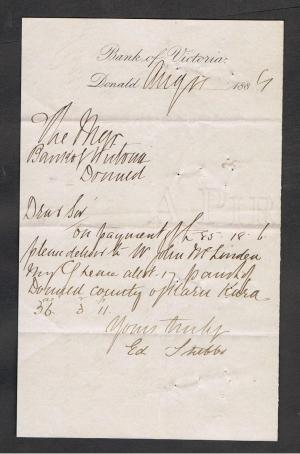 Bank of Victoria.
Donald Aug 188
The Mgr
Bank of Victoria
Donald
Dear Sir
on payment of £ 85-18-6
please deliver to Mr John McLinden
my C Lease allot. 17 parish of
Donald county of Kara Kara
36 3 11
Yours truly
Ed Stubbs